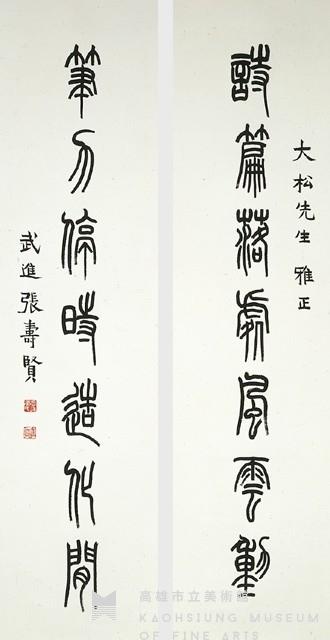 大松先生 雅正
詩篇落處風雲動
筆力停時造化閒
武進張壽賢
高雄市立美術館
KAOHSIUNG MUSEUM
OF FINE ARTS